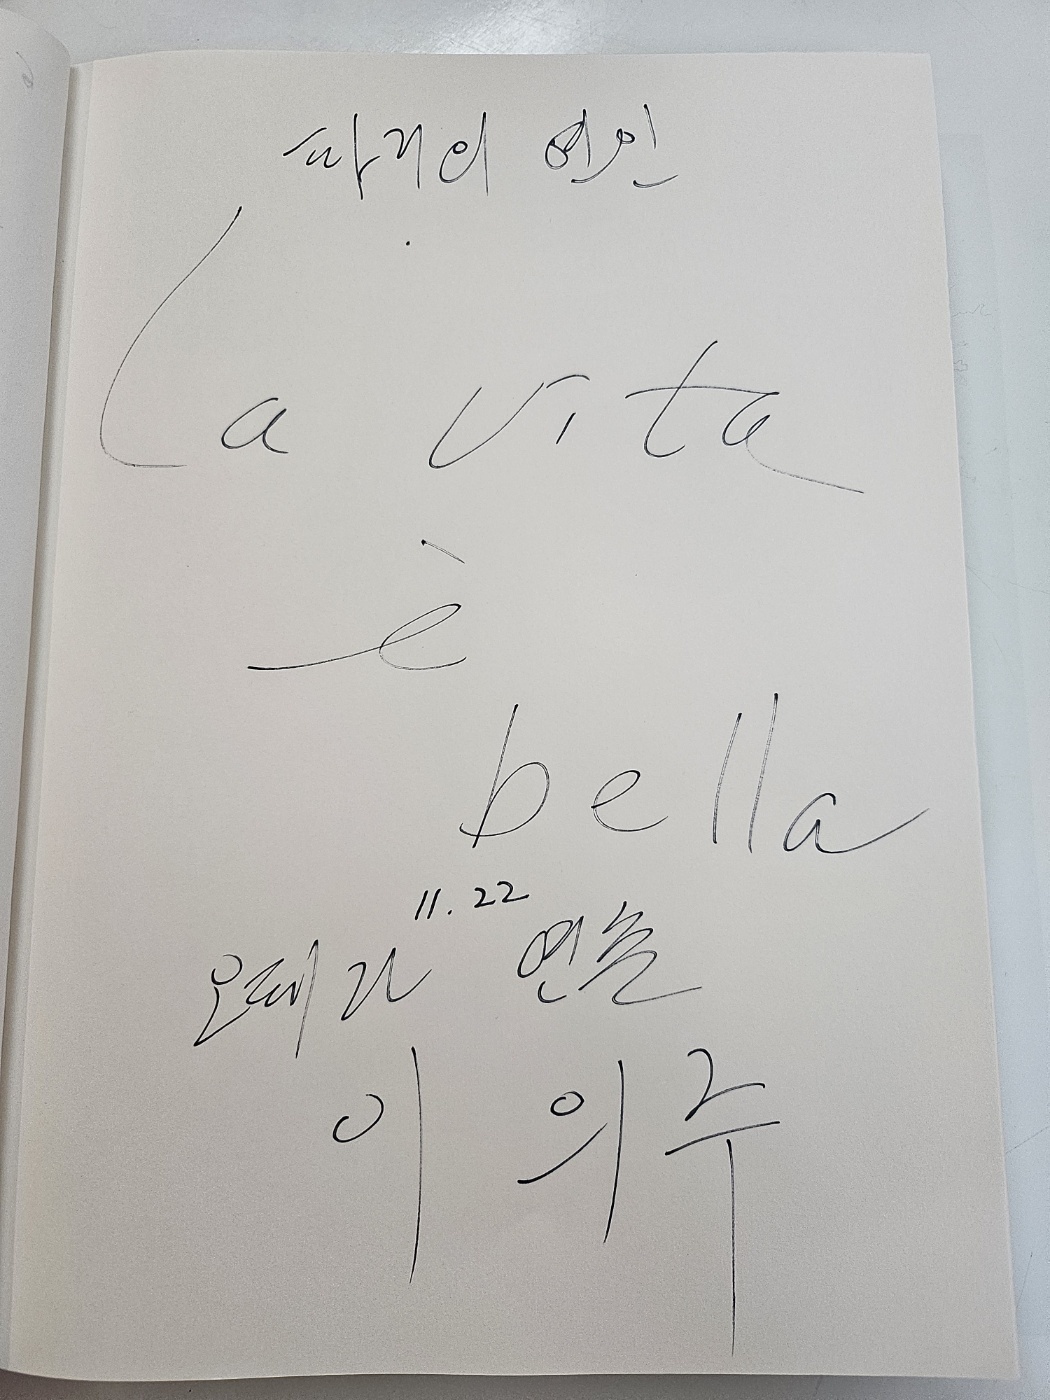 파리의 연인
La vita
è
bella
11.22
오페라 연출
이의주